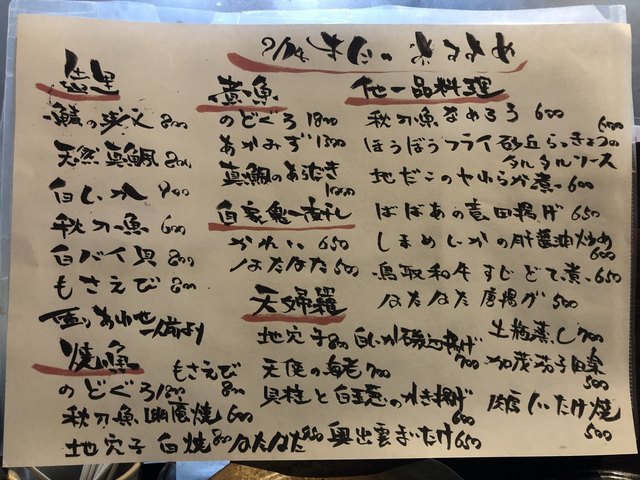 9/4 本日のおすすめ
造里
鱗の炙り 800
天然真鯛 800
白いか 900
秋刀魚 600
白バイ貝 800
もさえび 800
盛りあわせ二人前より
焼魚
もさえび 800
のどぐろ 1800
秋刀魚幽庵焼 600
地穴子白焼 800
はたはた 350
煮魚
のどぐろ 1800
あかみず 1300
真鯛のあらだき
1000
自家製一夜干し
かれい 650
はたはた 500
天婦羅
地穴子 800
白いか磯辺揚げ 700
天使の海老 700
貝柱と白玉葱のかき揚げ
600
奥出雲まいたけ 650
他一品料理
秋刀魚なめろう 600
ほうぼうフライ 砂丘らっきょうの
タルタルソース 600
地だこのやわらか煮 600
ばばあの竜田揚げ 650
しまめいかの肝醤油炒め
600
鳥取和牛すじどて煮 650
はたはた唐揚げ 500
土瓶蒸し 700
加茂茄子田楽
500
しいたけ焼
500